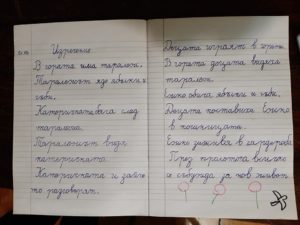 Изречение
В гората има таралеж.
Таралежът яде ябълки и
гъби.
Катеричката бяга след
таралежа.
Таралежът видя
катеричката.
Катеричката и зайче
то разговарят.
Децата играят в гората.
В гората децата видяха
таралеж.
Ежко обича ябълки и гъби.
Децата поставиха Ежко
в кошницата.
Ежко заживя в гардероба.
През пролетта всичко
се събужда за нов живот.